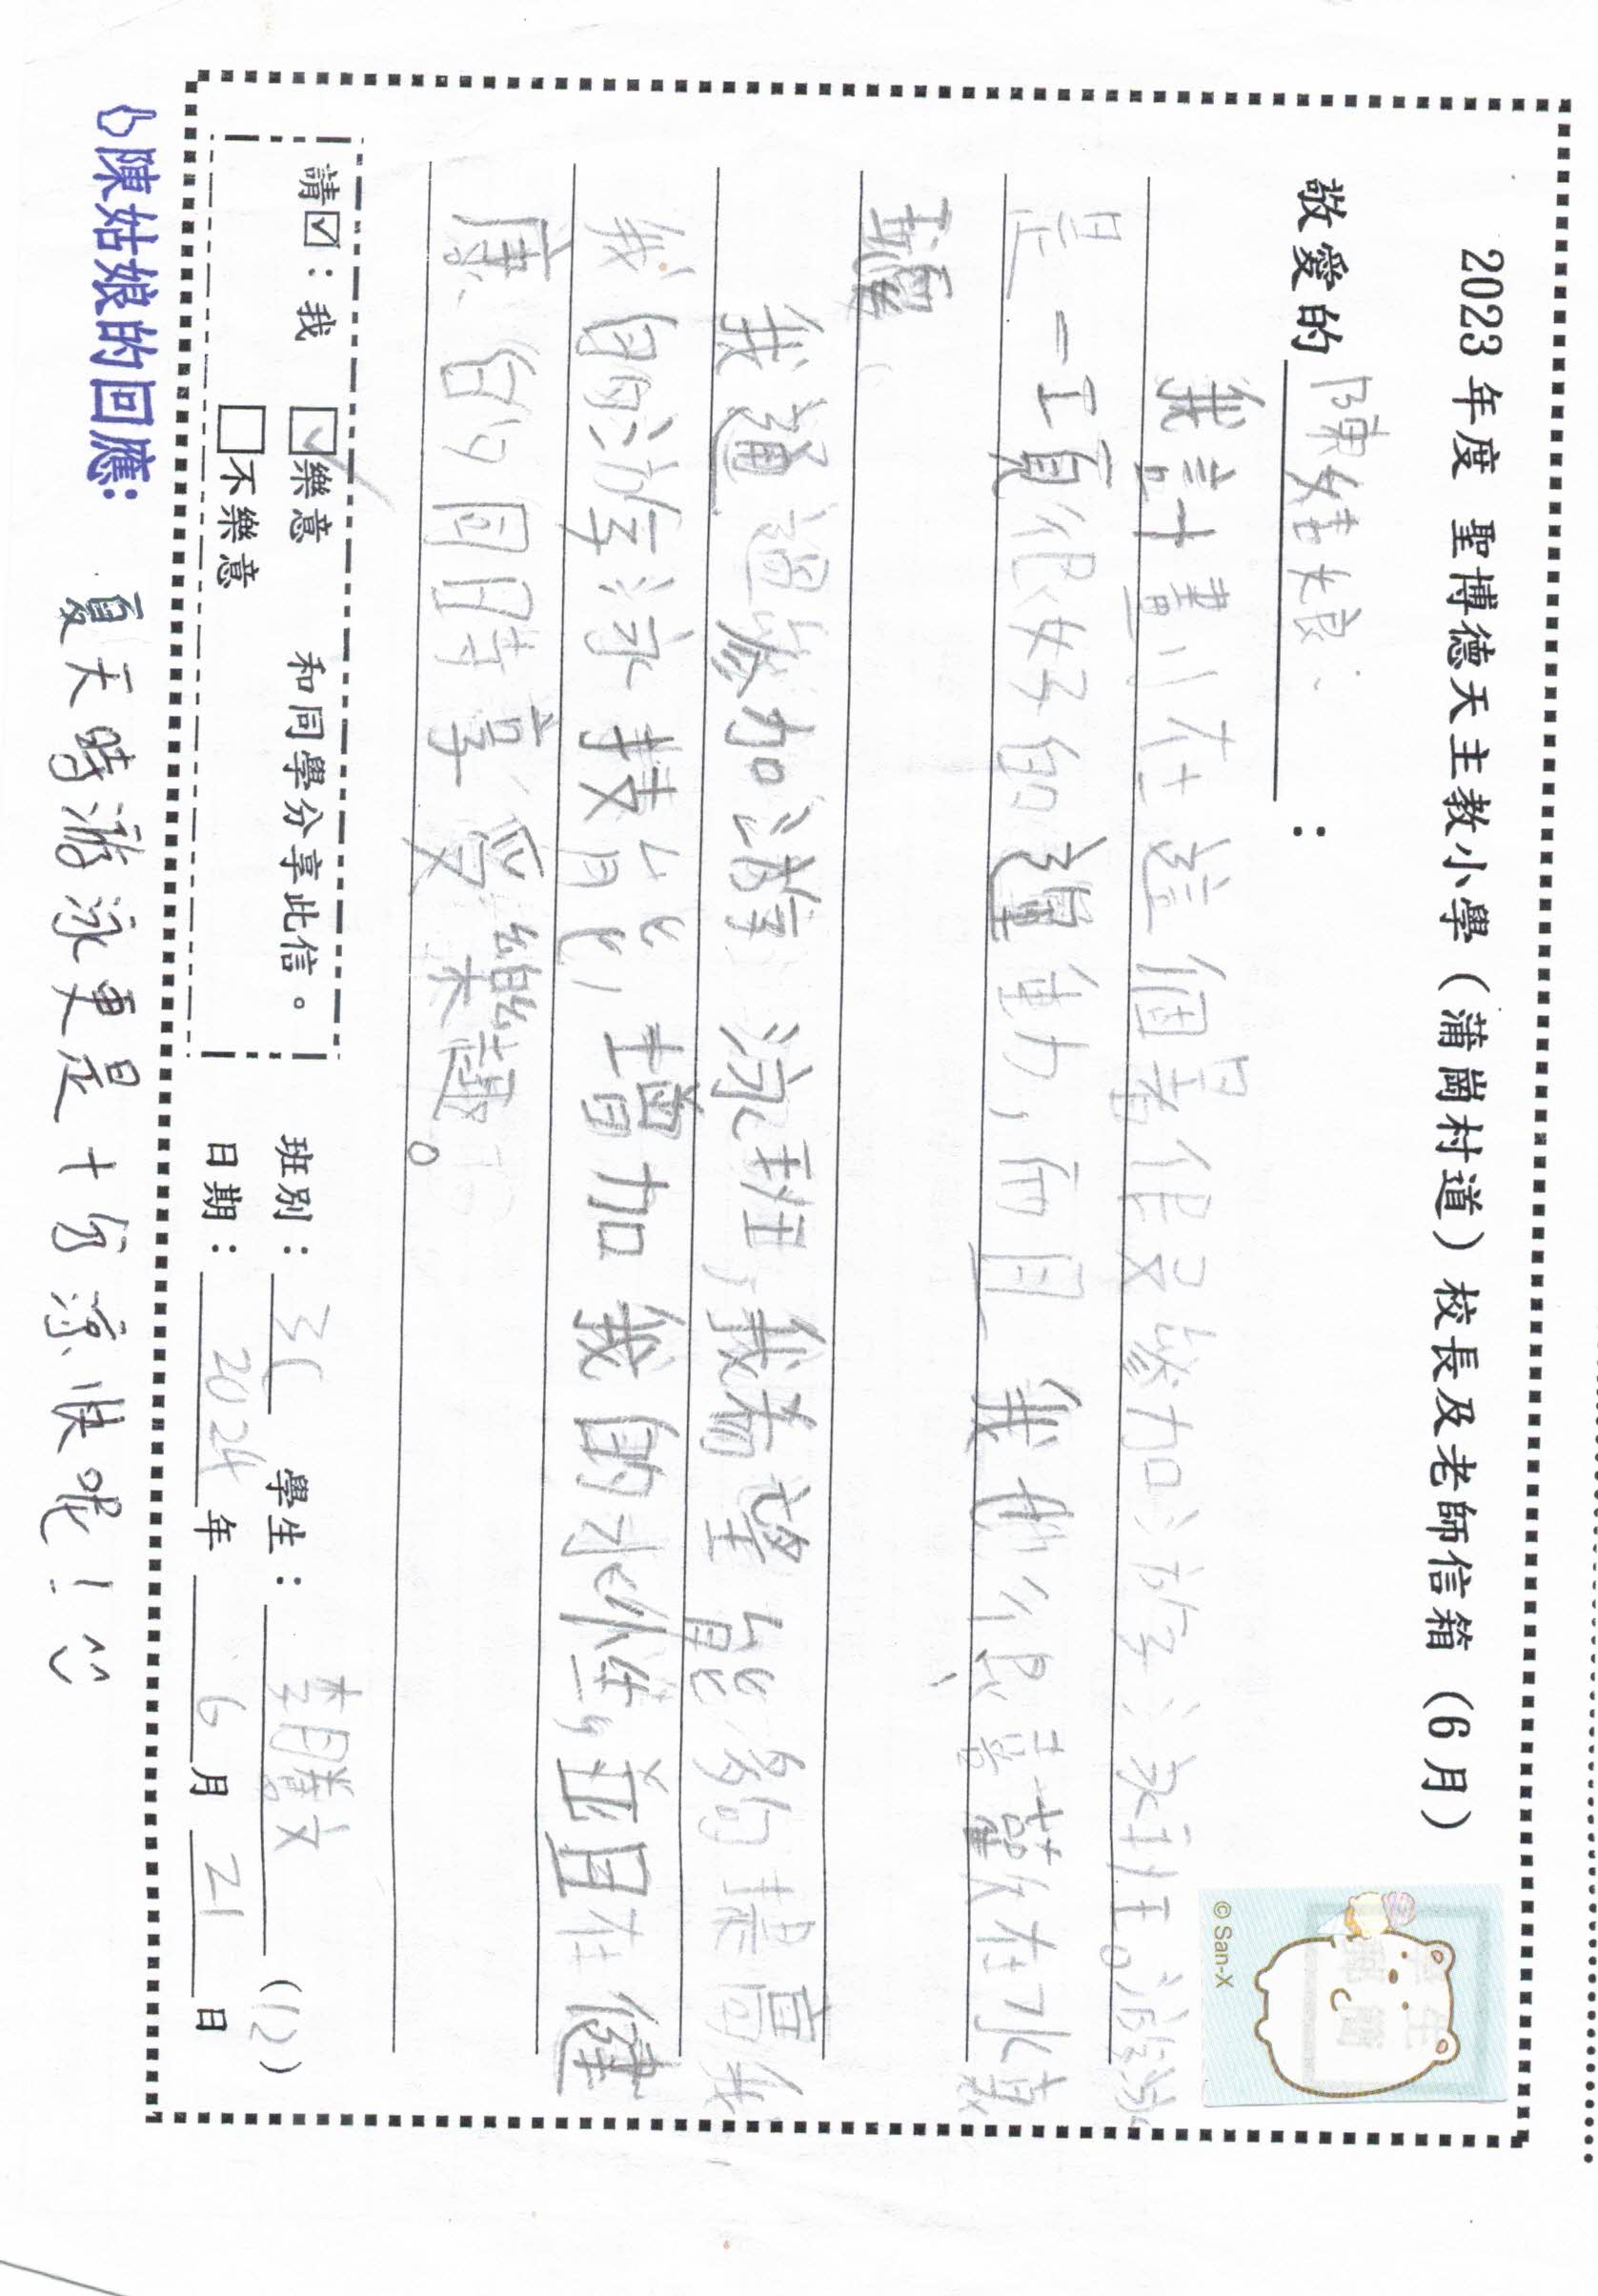 2023 年度 聖博德天主教小學（蒲崗村道）校長及老師信箱（6月）
敬愛的 陳姑娘： ：
我計畫在這個暑假參加游泳班。游泳
是一項很好的運動，而且我也很喜歡在水裏
玩
我通過參加游泳班，我希望能夠提高我
我自的游泳技能，增加我的水性，並且在健
康的同時享受樂趣。
請☑：我 ☑樂意 和同學分享此信。
☐不樂意
班別： 3C 學生： 李騰文 (12)
日期： 2024 年 6 月 21 日
陳姑娘的回應: 夏天時游泳更是十分涼快呢！
© San-X